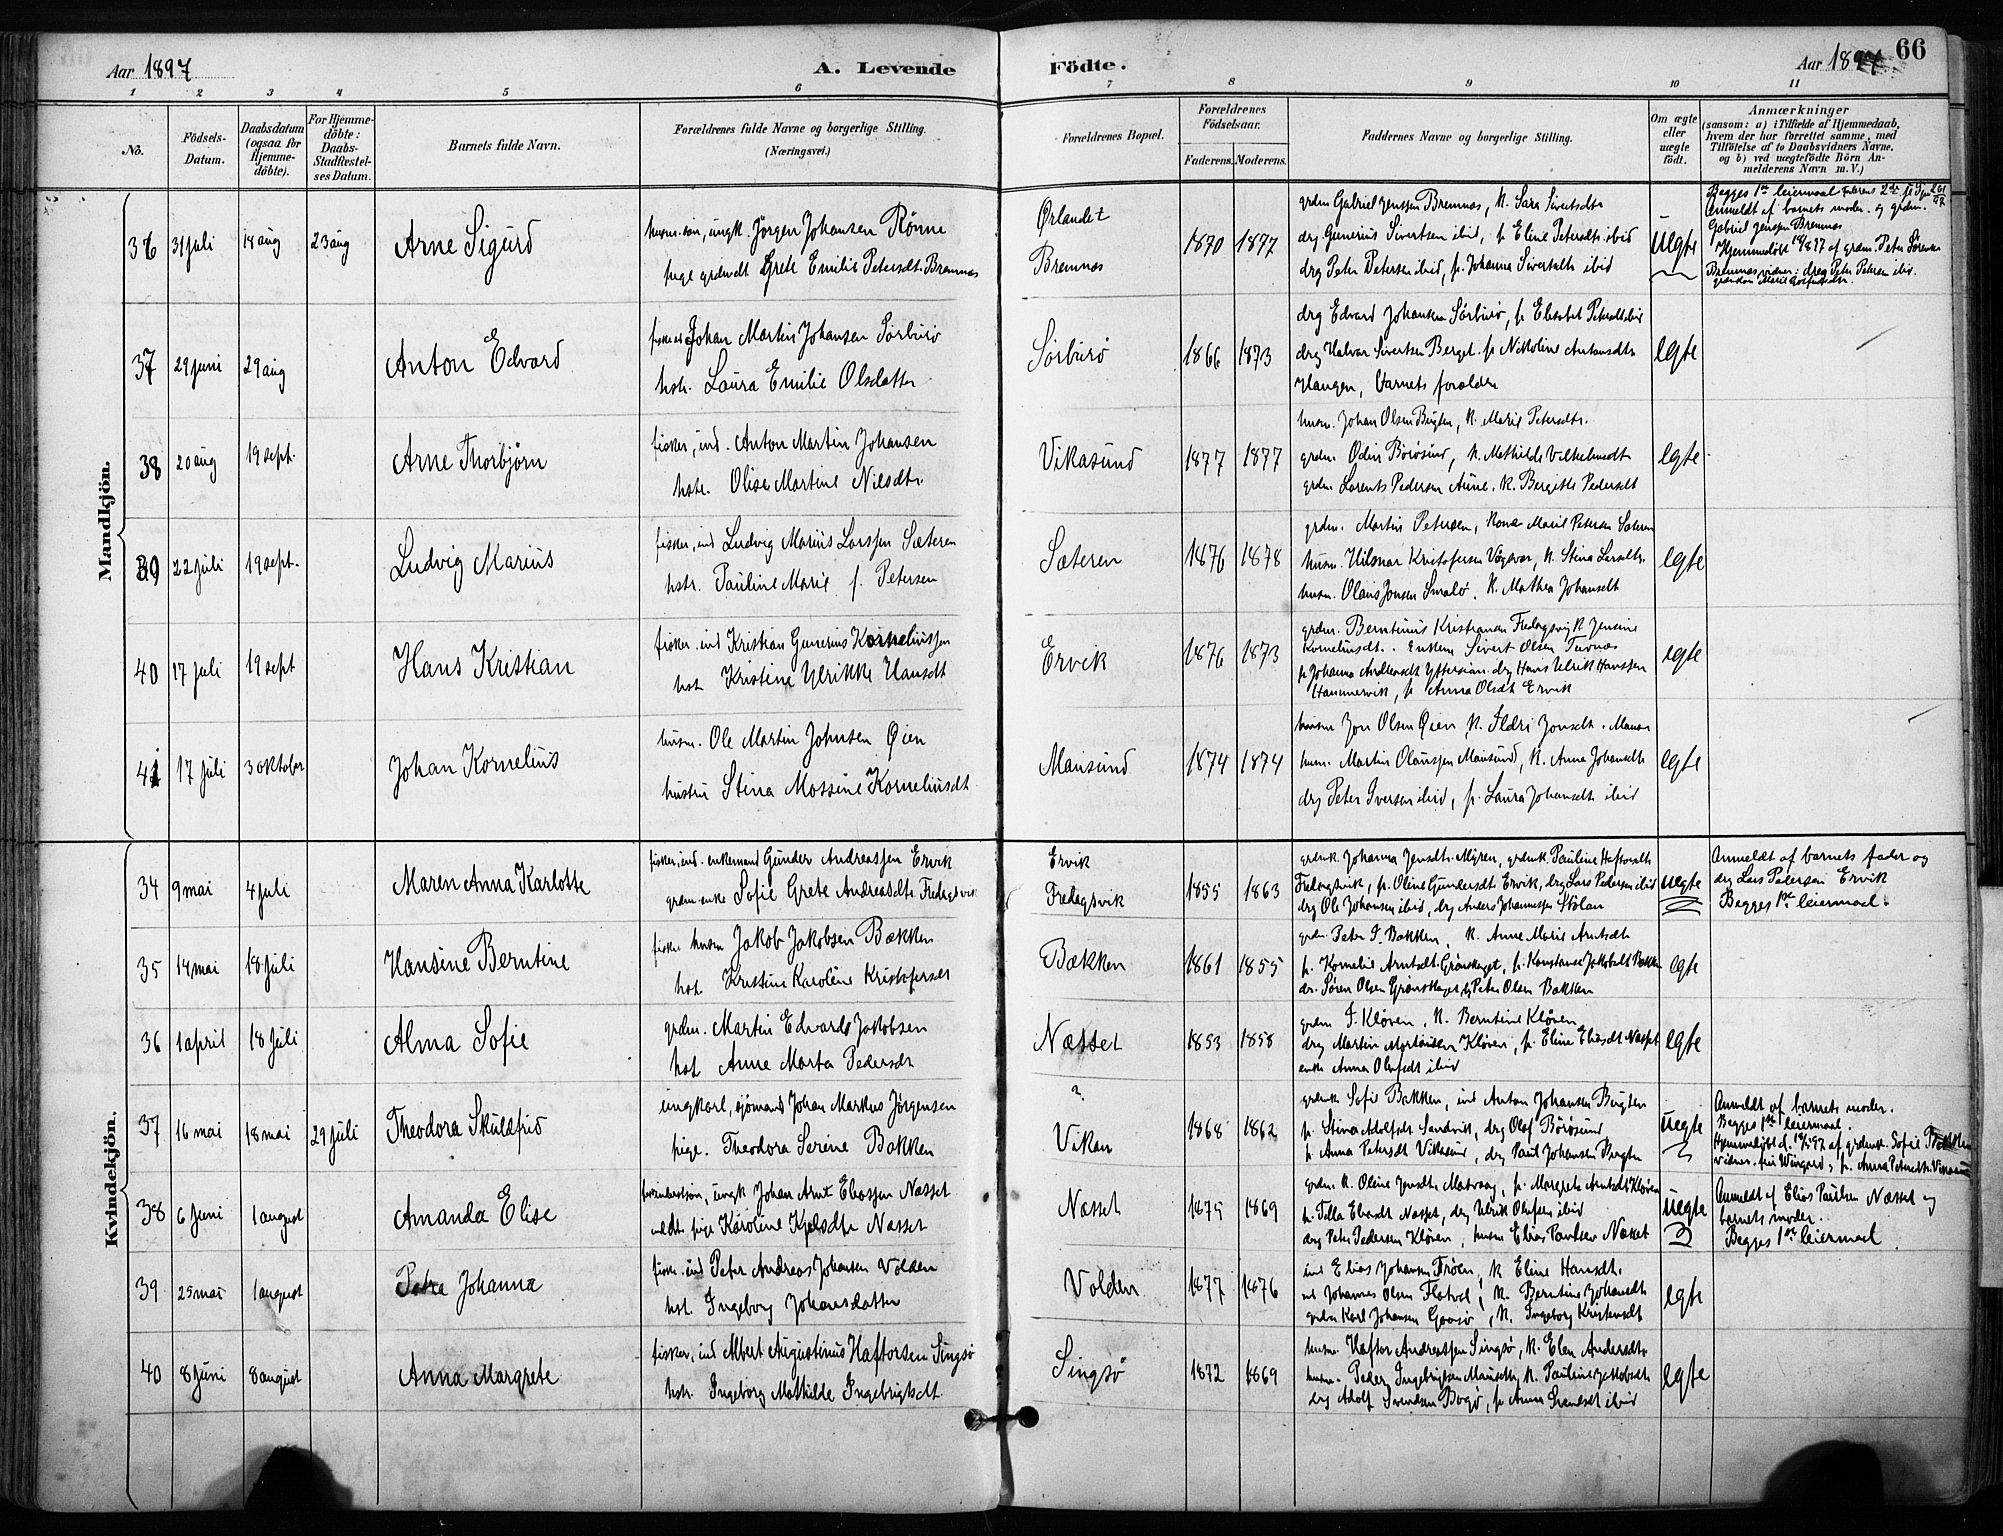 Aar 1897
A. Levende
Födte.
Aar 1897
66
1 2 3 4 5 6 7 8 9 10 11
No.
Födsels-
Datum.
Daabsdatum
(ogsaa for
Hjemme-
döbte).
For Hjemme-
döbte:
Daabs-
Stadfæstel-
ses Datum.
Barnets fulde Navn.
Forældrenes fulde Navne og borgerlige Stilling.
(Næringsvei.)
Forældrenes Bopæl.
Forældrenes
Födselsaar.
Faderens. Moderens.
Faddernes Navne og borgerlige Stilling.
Om ægte
eller
uægte
födt.
Anmærkninger
(saasom: a) i Tilfælde af Hjemmedaab,
hvem der har forrettet samme, med
Tilföielse af to Daabsvidners Navne,
og b) ved uægtefödte Börn An-
melderens Navn m.V.)
Mandkjön.
36 31 juli 18 aug 23 aug Arne Sigurd
ungk. Jörgen Johansen Rönne
Grete Emilie Petersdt. Bremnes
Ørlandet
Bremnæs
1870 1877
grdm Gabriel Jenssen Bremnæs, K. Sara Sivertsdtr
drg Gunerius Sivertsen ibid, p. Eline Petersdt. ibid
drg Peter Petersen ibid, p. Johanna Sivertsdt ibid
uegte
Begges 1ste leiermaal
Anmeldt af barnets moder og grdm.
Gabriel Jenssen Bremnæs
Hjemmedöbt 18/8 97 af grdm. Peter Sörensen
37 29 juni 29 aug Anton Edvard
Johan Martin Johansen Sörburö
hstr. Laura Emilie Olsdatter
Sörburö
1866 1873
drg Edvard Johansen Sörburö, p. Elisabet Petersdt ibid
drg Halvar Sivertsen Berget. p. Nikoline Antonsdtr
Haugen, Barnets forældre
egte
38 20 aug 19 sept. Arne Thorbjörn
fisker, ind. Anton Martin Johansen
hstr. Olise Martine Nilsdtr
Vikasund
1877 1877
husm. Johan Olsen Bugten, K. Marie Petersdtr.
grdm. Odin Börösund, K. Mathilde Vilhelmsdt.
grdm. Lorents Pedersen Aune. K. Bergitte Pedersdt
egte
39 22 juli 19 sept. Ludvig Marius
fisker, ind Ludvig Marius Larssen Sæteren
hstr. Pauline Marie f. Petersen
Sæteren
1876 1878
grdm. Martin Petersen, Kone Marie Petersen Sæteren
husm. Hilmar Kristofersen Vågsvær, K. Stina Larsdtr.
husm. Olaus Jonsen Smalö, K. Mathea Johansdt
egte
40 17 juli 19 sept Hans Kristian
fisker. ind Kristian Gunerius Korneliussen
hst. Kristine Ulrikke Hansdt
Ervik
1876 1873
grdm. Berntinus Kristiansen Fredagsvig K. Jensine
Korneliusdt. Enkem Sivert Olsen Tuvnæs
p. Johanna Andreasdt Yttersian drg Hans Ulrik Hanssen
Hammervik, p. Anna Olsdt Ervik
egte
41 17 juli 3 oktober Johan Kornelius
husm. Ole Martin Johnsen Øien
hustru Stina Mossine Korneliusdt
Mausund
1874 1874
husm Jon Olsen Øien, K. Ildri Jonsdt.
husm. Martin Olaussen Mausund, K. Anne Johansdt
drg Peter Iversen ibid, p. Laura Johansdt ibid
egte
Kvindekjön.
34 9 mai 4 juli Maren Anna Karlotte
fisker, ind. enkemand Gunder Andreassen Ervik
grdm-enke Sofie Grete Andreasdt. Fredagsvik
Ervik
Fredagsvik
1855 1863
grdmk. Johanna Jensdt. Myren, grdmk. Pauline Haftorsdt
Fredagsvik, p. Oline Gundersdt Ervik, drg Lars Pedersen ibid
drg Ole Johansen ibid, drg Anders Johannessen Stölan
uegte
Anmeldt af barnets fader og
drg Lars Pedersen Ervik
Begges 1ste leiermaal.
35 14 mai 18 juli Hansine Berntine
fisker husm Jakob Jakobsen Bækken
hst. Kristine Karoline Kristofersdt
Bækken
1861 1855
grdm Peter J. Bækken, K. Anne Marie Arntsdt
p. Kornelie Arntsdt. Grönskaget, p. Konstanse Jakobsdt Bækken
dr. Sören Olsen Grönskaget, drg Peter Olsen Bækken
egte
36 1 april 18 juli Alma Sofie
grdm. Martin Edvard Jakobsen
hst. Anne Marta Pedersdt
Næsset
1853 1858
grdm J. Klöven, K. Berntine Klöven
drg Martin Klöven, p. Eline Eliasdt Næsset
enke Anna Olufsdt ibid
egte
37 16 mai 18 mai 29 juli Theodora Skuldfrid
ungkarl, sjömand Johan Markus Jörgensen
pige. Theodora Serine Bækken
?
Vikan
1868 1862
grdmk Sofie Bækken, ind Anton Johansen Bugten
p. Stina Adolfsdt Sandvik, drg Olaf Börösund
p. Anna Petersdt Vikasund, drg Paul Johansen Bugten
uegte
Anmeldt af barnets moder.
Begges 1ste leiermaal.
38 6 juni 1 august Amanda Elise
ungk Johan Arnt Eliassen Næsset
pige Karoline Næsset
Næsset
1875 1869
grdm. K. Oline Jensdt. Matvaag, p. Margrete Arntsdt Klöven
drg Ulrik Olufsen ibid
drg Peter Pedersen Klöven, husm Elias Paulsen Næsset
uegte
Anmeldt af Elias Paulsen Næsset og
barnets moder.
Begges 1ste leiermaal
39 25 mai 1 august Petra Johanna
fisker, ind Peter Andreas Johansen Volden
hst. Ingeborg Johansdatter
Volden
1877 1876
ind Elias Johansen Fröen, K Eline Hansdt.
ind Johannes Olsen Flatval, K. Berntine Johansdt
grdm Karl Johansen Gaasö, K. Ingeborg Kristensdt
egte
40 8 juni 8 august Anna Margrete
fisker, ind Albert Augustinus Haftorsen Singsö
hstr. Ingeborg Mathilde Ingebrigtsdt.
Singsö
1872 1869
husm. Haftor Andreassen Singsö, K. Elen Andersdtr
husm. Peder Ingebrigtsen K. Pauline Jakobsdt
drg Adolf Svendsen Bogö, p. Anna ibid
egte